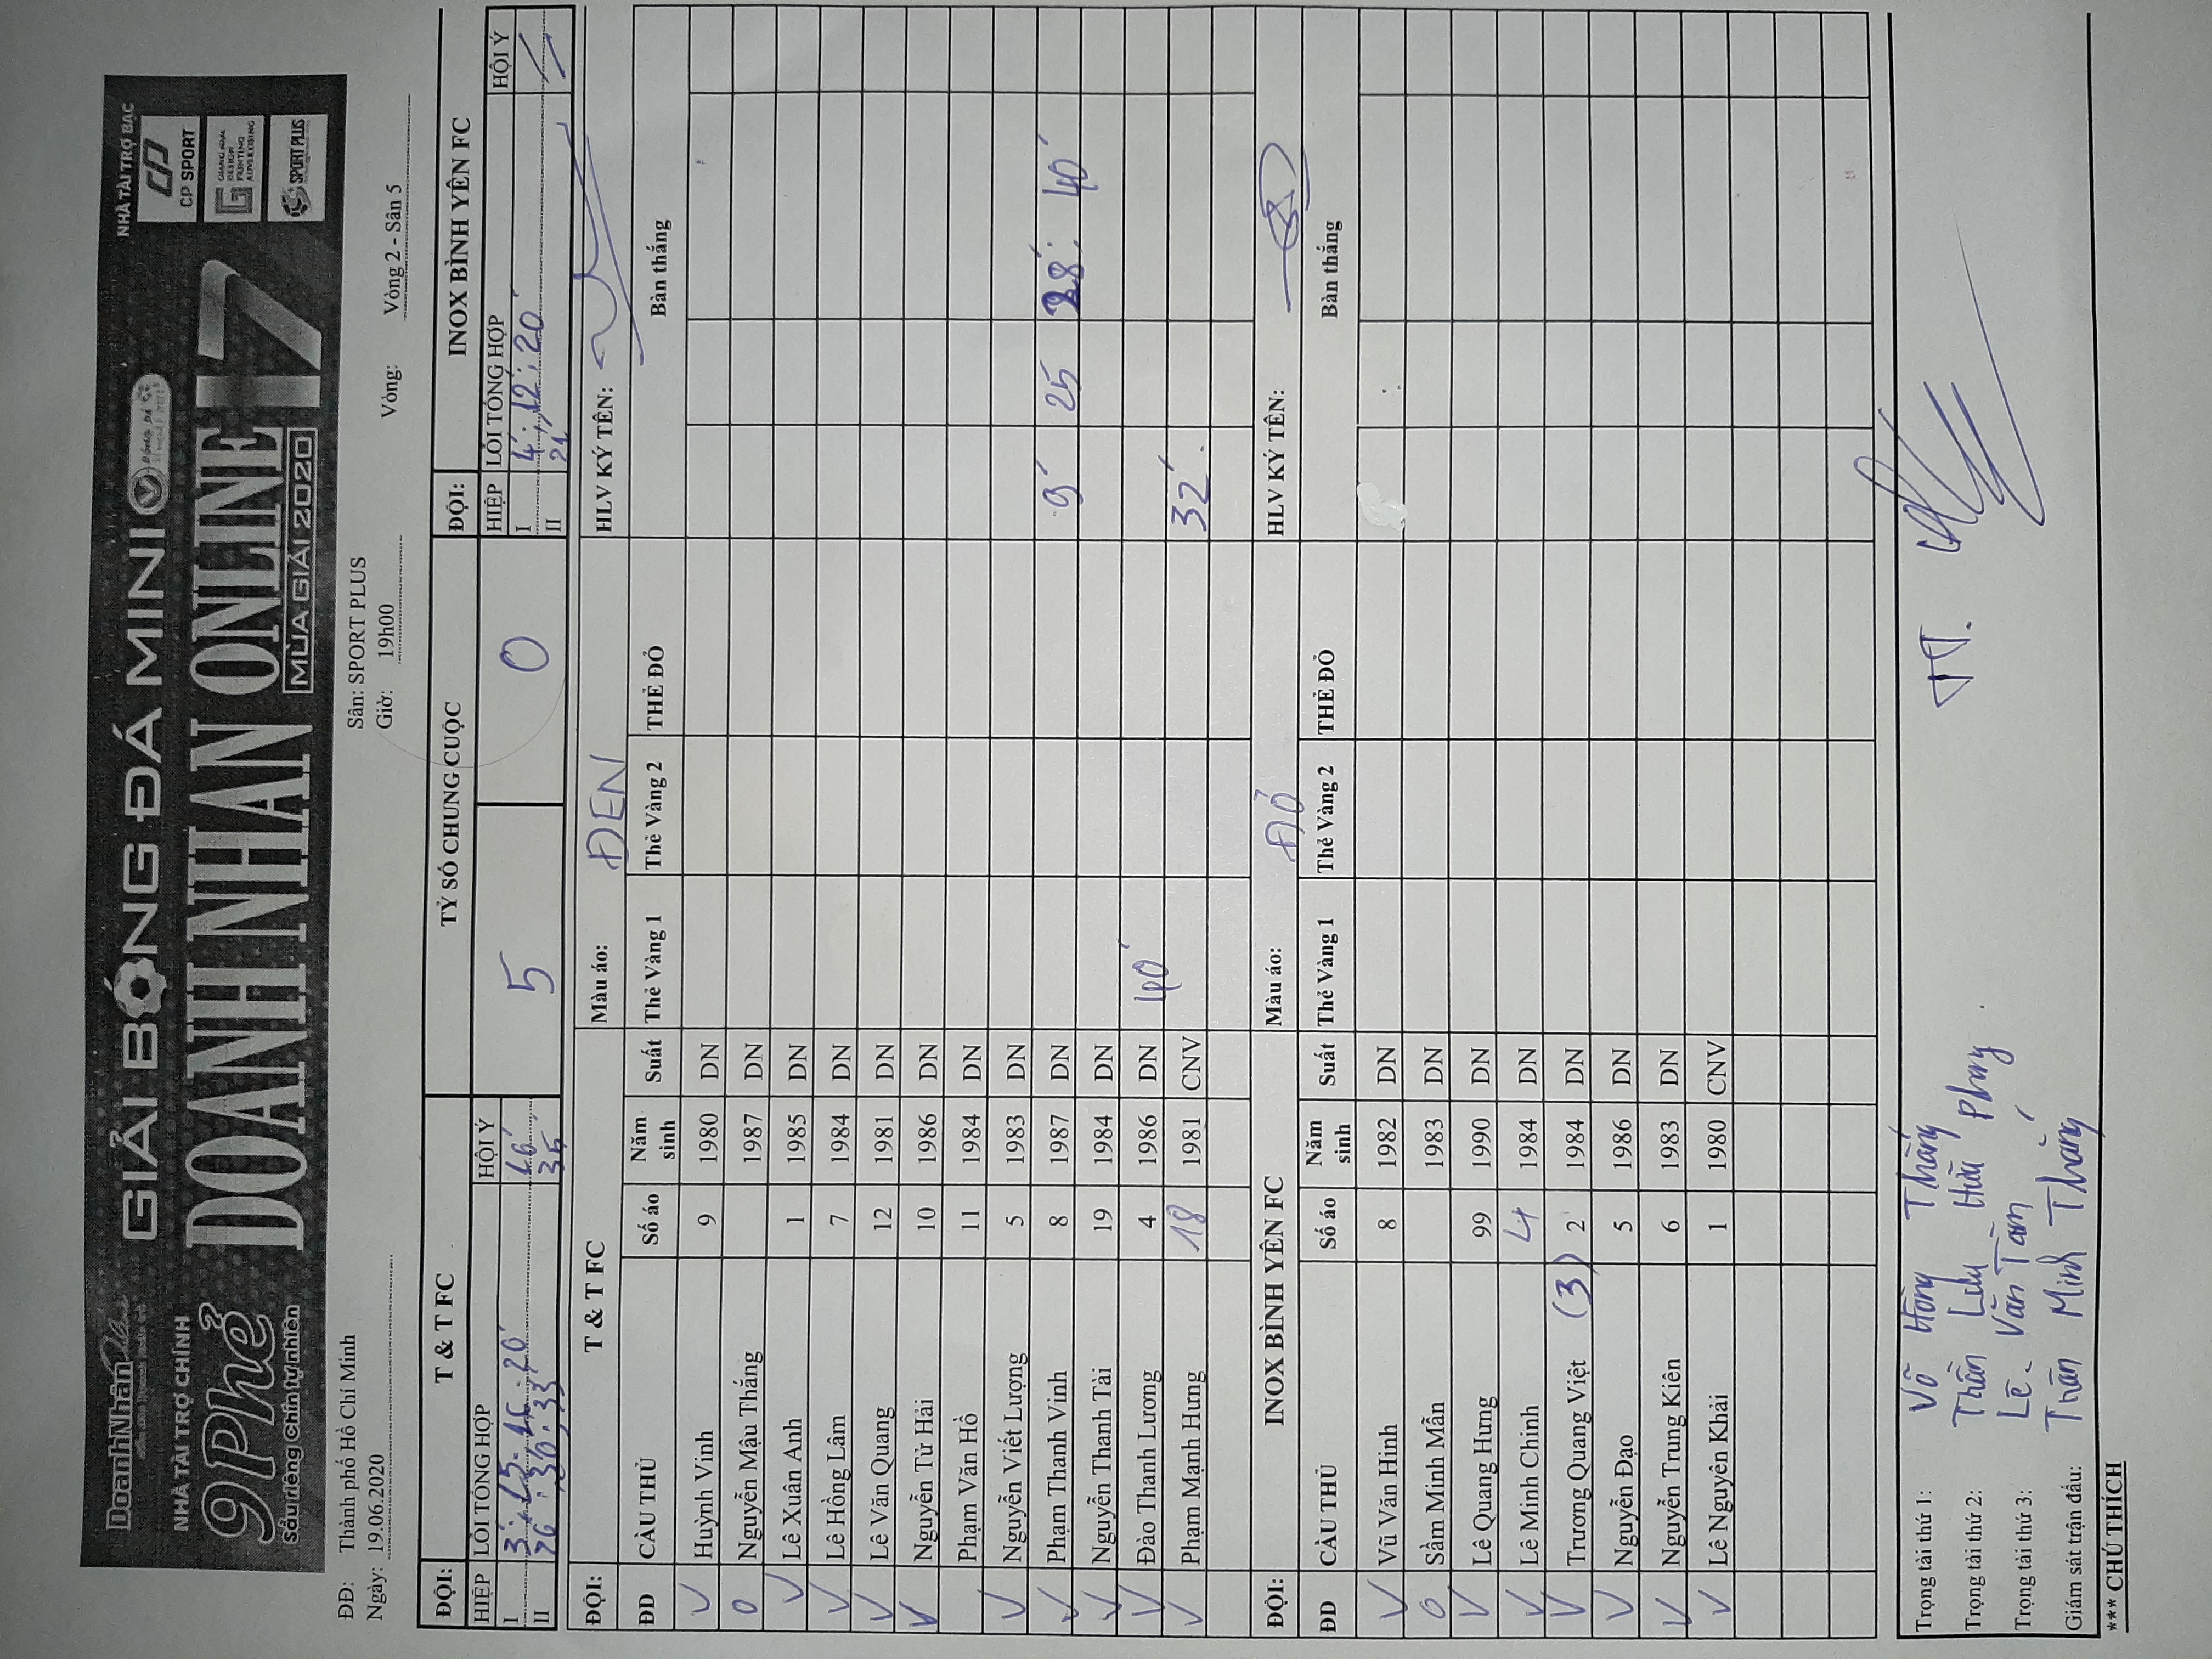 DoanhNhân
NHÀ TÀI TRỢ CHÍNH
9Phẻ
Sầu riêng Chín tự nhiên
GIẢI BÓNG ĐÁ MINI
DOANH NHÂN ONLINE 17
MÙA GIẢI 2020
NHÀ TÀI TRỢ BẠC
CP SPORT
DESIGN
PRINTING
ADVERTISING
SPORT PLUS
ĐĐ: Thành phố Hồ Chí Minh Sân: SPORT PLUS
Ngày: 19.06.2020 Giờ: 19h00 Vòng: Vòng 2 - Sân 5
ĐỘI: T & T FC TỶ SỐ CHUNG CUỘC ĐỘI: INOX BÌNH YÊN FC
HIỆP LỖI TỔNG HỢP HỘI Ý 5 0 HIỆP LỖI TỔNG HỢP HỘI Ý
I 3' 15' 16' 20' 16' I 4' 12' 20'
II 26' 30' 33' 35' II 21'
ĐỘI: T & T FC Màu áo: ĐEN HLV KÝ TÊN:
ĐD CẦU THỦ Số áo Năm sinh Suất Thẻ Vàng 1 Thẻ Vàng 2 THẺ ĐỎ Bàn thắng
V Huỳnh Vinh 9 1980 DN
0 Nguyễn Mậu Thắng 1987 DN
V Lê Xuân Anh 1 1985 DN
V Lê Hồng Lâm 7 1984 DN
V Lê Văn Quang 12 1981 DN
V Nguyễn Từ Hải 10 1986 DN
Phạm Văn Hồ 11 1984 DN
V Nguyễn Viết Lượng 5 1983 DN
V Phạm Thanh Vinh 8 1987 DN 9' 25 28' 40'
V Nguyễn Thanh Tài 19 1984 DN
V Đào Thanh Lương 4 1986 DN 40'
V Phạm Mạnh Hưng 18 1981 CNV 32'
ĐỘI: INOX BÌNH YÊN FC Màu áo: ĐỎ HLV KÝ TÊN:
ĐD CẦU THỦ Số áo Năm sinh Suất Thẻ Vàng 1 Thẻ Vàng 2 THẺ ĐỎ Bàn thắng
V Vũ Văn Hinh 8 1982 DN
0 Sầm Minh Mẫn 1983 DN
V Lê Quang Hưng 99 1990 DN
V Lê Minh Chinh 4 1984 DN
V Trương Quang Việt (3) 2 1984 DN
V Nguyễn Đạo 5 1986 DN
V Nguyễn Trung Kiên 6 1983 DN
V Lê Nguyên Khải 1 1980 CNV
Trọng tài thứ 1: Võ Hồng Thắng
Trọng tài thứ 2: Trần Lưu Hữu Phong
Trọng tài thứ 3: Lê Văn Tám
Giám sát trận đấu: Trần Minh Thắng
TT.
*** CHÚ THÍCH